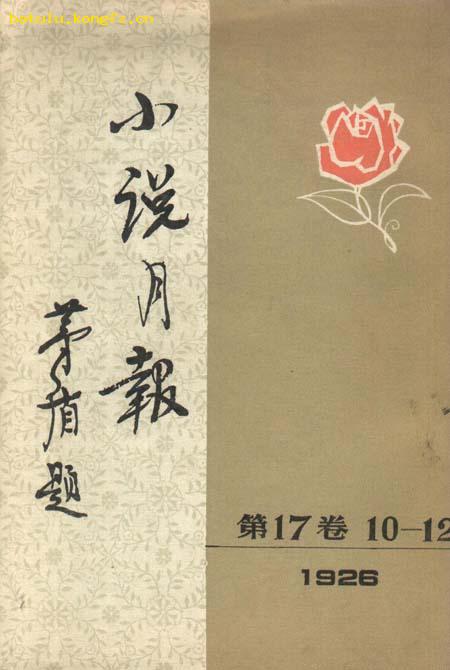 batulu.kongfz.cn
小说月報
茅盾题
第17卷 10-12
1926